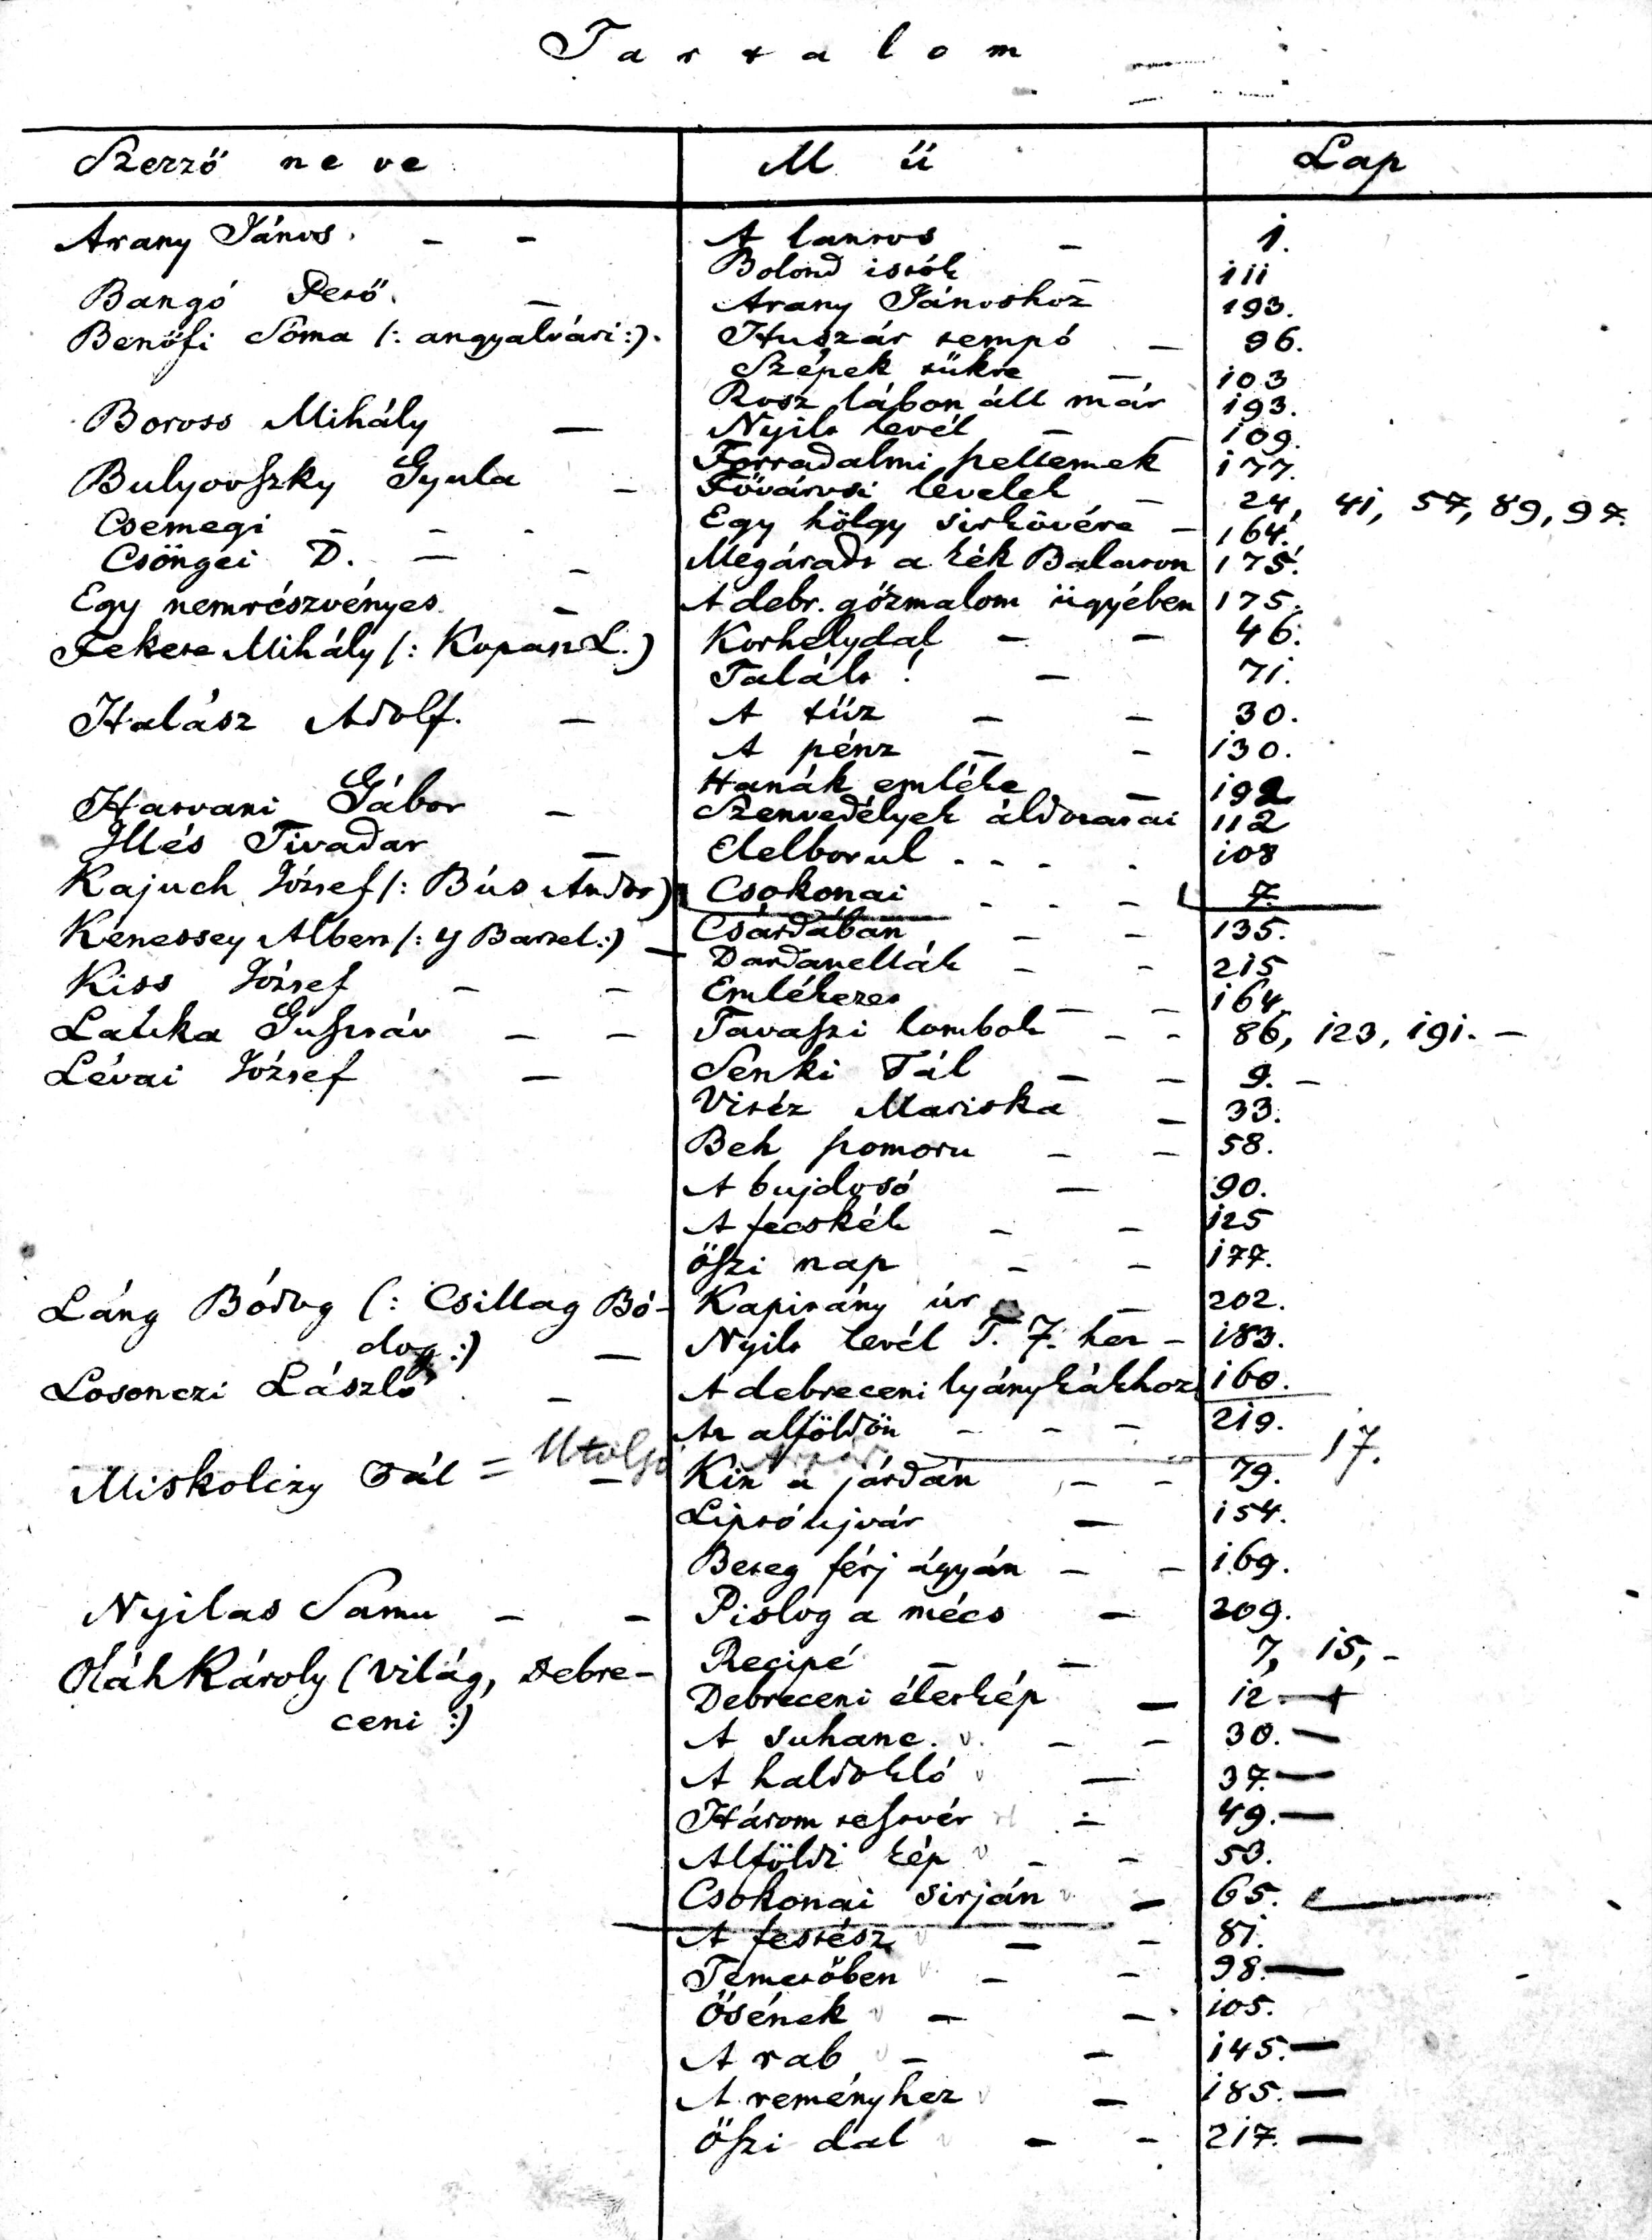 Tartalom
Szerző neve Mű Lap
Arany János. - - A lantos - 1.
Bolond istók 111
Bangó Pető. - Arany Jánoshoz - 193.
Benőfi Soma (: angyalvári :). Huszár tempó - 96.
Szépek tükre - 103
Rosz lábon áll már 193.
Boross Mihály - Nyilt levél - - 109.
Forradalmi szellemek 177.
Bulyovszky Gyula - Fővárosi levelek - 24, 41, 57, 89, 97.
Csemegi - - - Egy hölgy sirkövére - 164.
Csöngei D. - - Megáradt a kék Balaton 175.
Egy nemrészvényes - A debr. gőzmalom ügyében 175.
Fekete Mihály (: Kopasz L.) Korhelydal - - 46.
Talált! - 71.
Halász Adolf. - A tűz - - 30.
A pénz - - 130.
Hanák emléke - 192
Hatvani Gábor - Szenvedélyek áldozatai 112
Illés Tivadar - Elelborul - - - 108
Kajuch József (: Bús Andor) Csokonai - - - 7.
Kenessey Albert (: y Barzel :) - Csárdában - - 135.
Dardanellák - - 215
Kiss József - - Emlékezet - - 164.
Latzka Gusztáv - - Tavaszi lombok - - 86, 123, 191. -
Lévai József - Senki Pál - - 9. -
Vitéz Mariska - 33.
Beh szomoru - - 58.
A bujdosó - 90.
A fecskék - - 125
Őszi nap - - 177.
Láng Bódog (: Csillag Bó- Kapitány úr - 202.
dog :) - Nyilt levél T. J. hez - 183.
Losonczi László - A debreceni lyánykákhoz 160.
Az alföldön - - - 219.
Miskolczy Pál = Utolsó 17.
- Kin a járdán - - 79.
Lipótujvár - 154.
Beteg férj ágyán - - 169.
Nyilas Samu - - Pislog a mécs - 209.
Recipé - - 7, 15, -
Oláh Károly (Világ, Debre- Debreceni életkép - 12. -
ceni :) A suhanc. v. - - 30. -
A haldokló v - 37. -
Három testvér - 49. -
Alföldi kép v - - 53.
Csokonai sirján v - 65.
A festész v - - 81.
Temetőben v - - 98. -
Ősének v - - 105.
A rab v - - 145. -
A reményhez v - 185. -
Őszi dal v - - 217. -